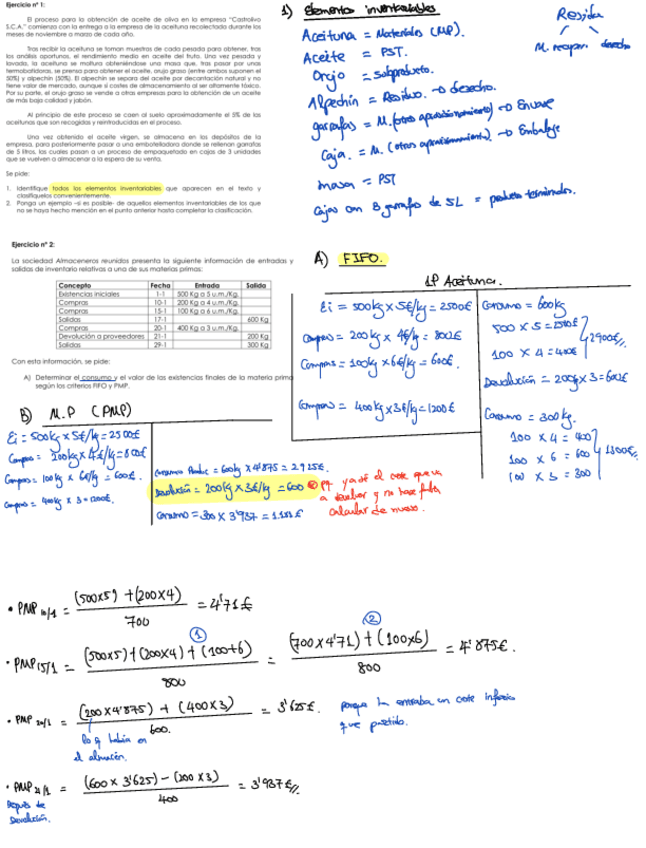 Ejercicio nº 1:
El proceso para la obtención de aceite de oliva en la empresa "Castrolivo
S.C.A." comienza con la entrega a la empresa de la aceituna recolectada durante los
meses de noviembre a marzo de cada año.
Tras recibir la aceituna se toman muestras de cada pesada para obtener, tras
los análisis oportunos, el rendimiento medio en aceite del fruto. Una vez pesada y
lavada, la aceituna se moltura obteniéndose una masa que, tras pasar por unas
termobatidoras, se prensa para obtener el aceite, orujo graso (entre ambos suponen el
50%) y alpechín (50%). El alpechín se separa del aceite por decantación natural y no
tiene valor de mercado, aunque sí costes de almacenamiento al ser altamente tóxico.
Por su parte, el orujo graso se vende a otras empresas para la obtención de un aceite
de más baja calidad y jabón.
Al principio de este proceso se caen al suelo aproximadamente el 5% de las
aceitunas que son recogidas y reintroducidas en el proceso.
Una vez obtenido el aceite virgen, se almacena en los depósitos de la
empresa, para posteriormente pasar a una embotelladora donde se rellenan garrafas
de 5 litros, las cuales pasan a un proceso de empaquetado en cajas de 3 unidades
que se vuelven a almacenar a la espera de su venta.
Se pide:
1. Identifique todos los elementos inventariables que aparecen en el texto y
clasifíquelos convenientemente.
2. Ponga un ejemplo -si es posible- de aquellos elementos inventariables de los que
no se haya hecho mención en el punto anterior hasta completar la clasificación.
1) Elementos inventariables
Aceituna = Materiales (MP).
Aceite = PST.
Orujo = subproducto.
Alpechín = Residuo. → desecho.
garrafas = M. (otros aprovisionamiento) → Envase
Caja. = M. (otros aprovisionamiento). → Embalaje
masa = PST
Cajas con 3 garrafas de 5L = producto terminado.
Residuo
M. recuper. desecho
Ejercicio nº 2:
La sociedad Almaceneros reunidos presenta la siguiente información de entradas y
salidas de inventario relativas a una de sus materias primas:
Concepto Fecha Entrada Salida
Existencias iniciales 1-1 500 Kg a 5 u.m./Kg.
Compras 10-1 200 Kg a 4 u.m./Kg.
Compras 15-1 100 Kg a 6 u.m./Kg.
Salidas 17-1 600 Kg
Compras 20-1 400 Kg a 3 u.m./Kg.
Devolución a proveedores 21-1 200 Kg
Salidas 29-1 300 Kg
Con esta información, se pide:
A) Determinar el consumo y el valor de las existencias finales de la materia prima
según los criterios FIFO y PMP.
A) FIFO.
MP Aceituna.
Ei = 500kg x 5€/kg = 2500€
Compras = 200kg x 4€/kg = 800€
Compras = 100kg x 6€/kg = 600€.
Compras = 400kg x 3€/kg = 1200€
Consumo = 600kg
500 x 5 = 2500€
100 x 4 = 400€
2900€//
Devolución = 200kg x 3 = 600€
Consumo = 300kg.
100 x 4 = 400
100 x 6 = 600
100 x 3 = 300
1300€//
B) M.P (PMP)
Ei = 500kg x 5€/kg = 2500€
Compras = 200kg x 4€/kg = 800€
Compras = 100kg x 6€/kg = 600€.
Compras = 400kg x 3 = 1200€.
Consumo Produc = 600kg x 4'875 = 2.925€.
Devolución = 200kg x 3€/kg = 600
ya sé el coste que va
a devolver y no hace falta
calcular de nuevo.
Consumo = 300 x 3'937 = 1.181€
• PMP 10/1 = (500x5) + (200x4) / 700 = 4'71€
• PMP 15/1 = (500x5) + (200x4) + (100+6) / 800 = (700x4'71) + (100x6) / 800 = 4'875€.
1
2
• PMP 20/1 = (200x4'875) + (400x3) / 600. = 3'625€.
lo q había en
el almacén.
porque ha entraba un coste inferior
que partido.
• PMP 21/1 = (600 x 3'625) - (200 x 3) / 400 = 3'937€//
después de
Devolución.